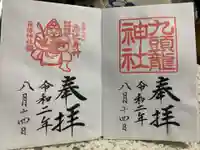 九頭龍
神社
奉拝
令和二年
八月十四日
奉拝
令和二年
八月十四日